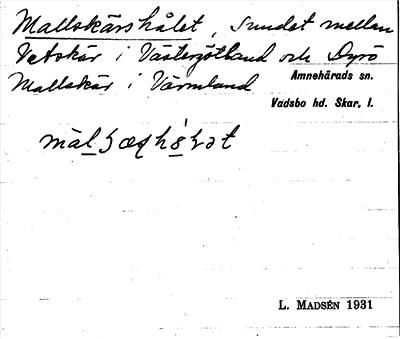 Mallskärshålet, sundet mellan
Vetskär i Västergötland och Dyrö
Mallskär i Värmland
Amnehärads sn.
Vadsbo hd. Skar. l.
L. MADSÉN 1931